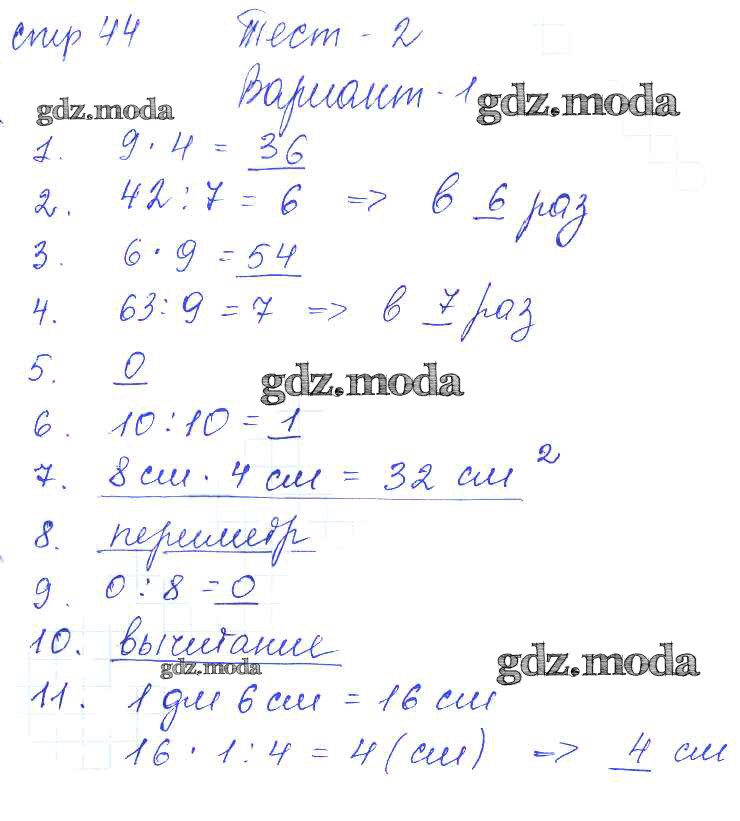 стр 44 Тест - 2
Вариант - 1
gdz.moda gdz.moda
1. 9 · 4 = 36
2. 42 : 7 = 6 => в 6 раз
3. 6 · 9 = 54
4. 63 : 9 = 7 => в 7 раз
5. 0
gdz.moda
6. 10 : 10 = 1
7. 8 см · 4 см = 32 см²
8. периметр
9. 0 : 8 = 0
10. вычитание
gdz.moda gdz.moda
11. 1 дм 6 см = 16 см
16 · 1 : 4 = 4 (см) => 4 см